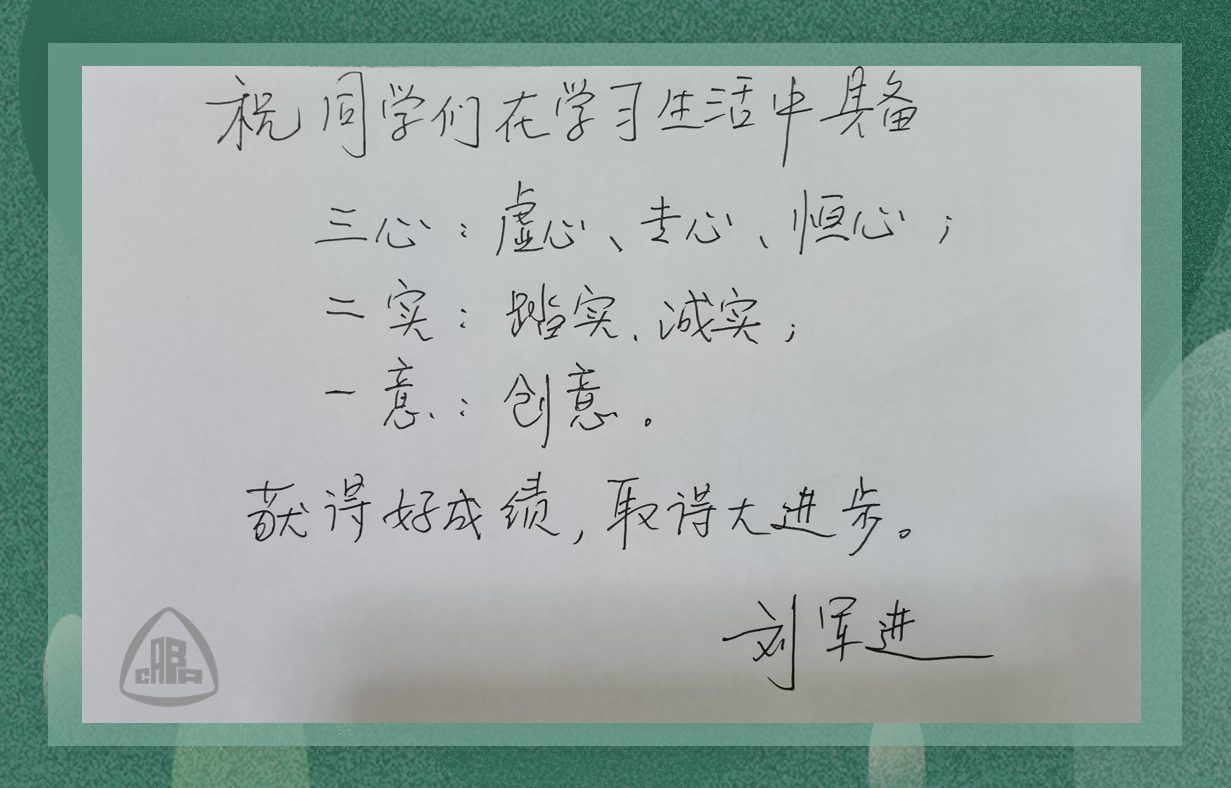 祝同学们在学习生活中具备
三心：虚心、专心、恒心；
二实：踏实、诚实；
一意：创意。
获得好成绩，取得大进步。
刘军进
CABR